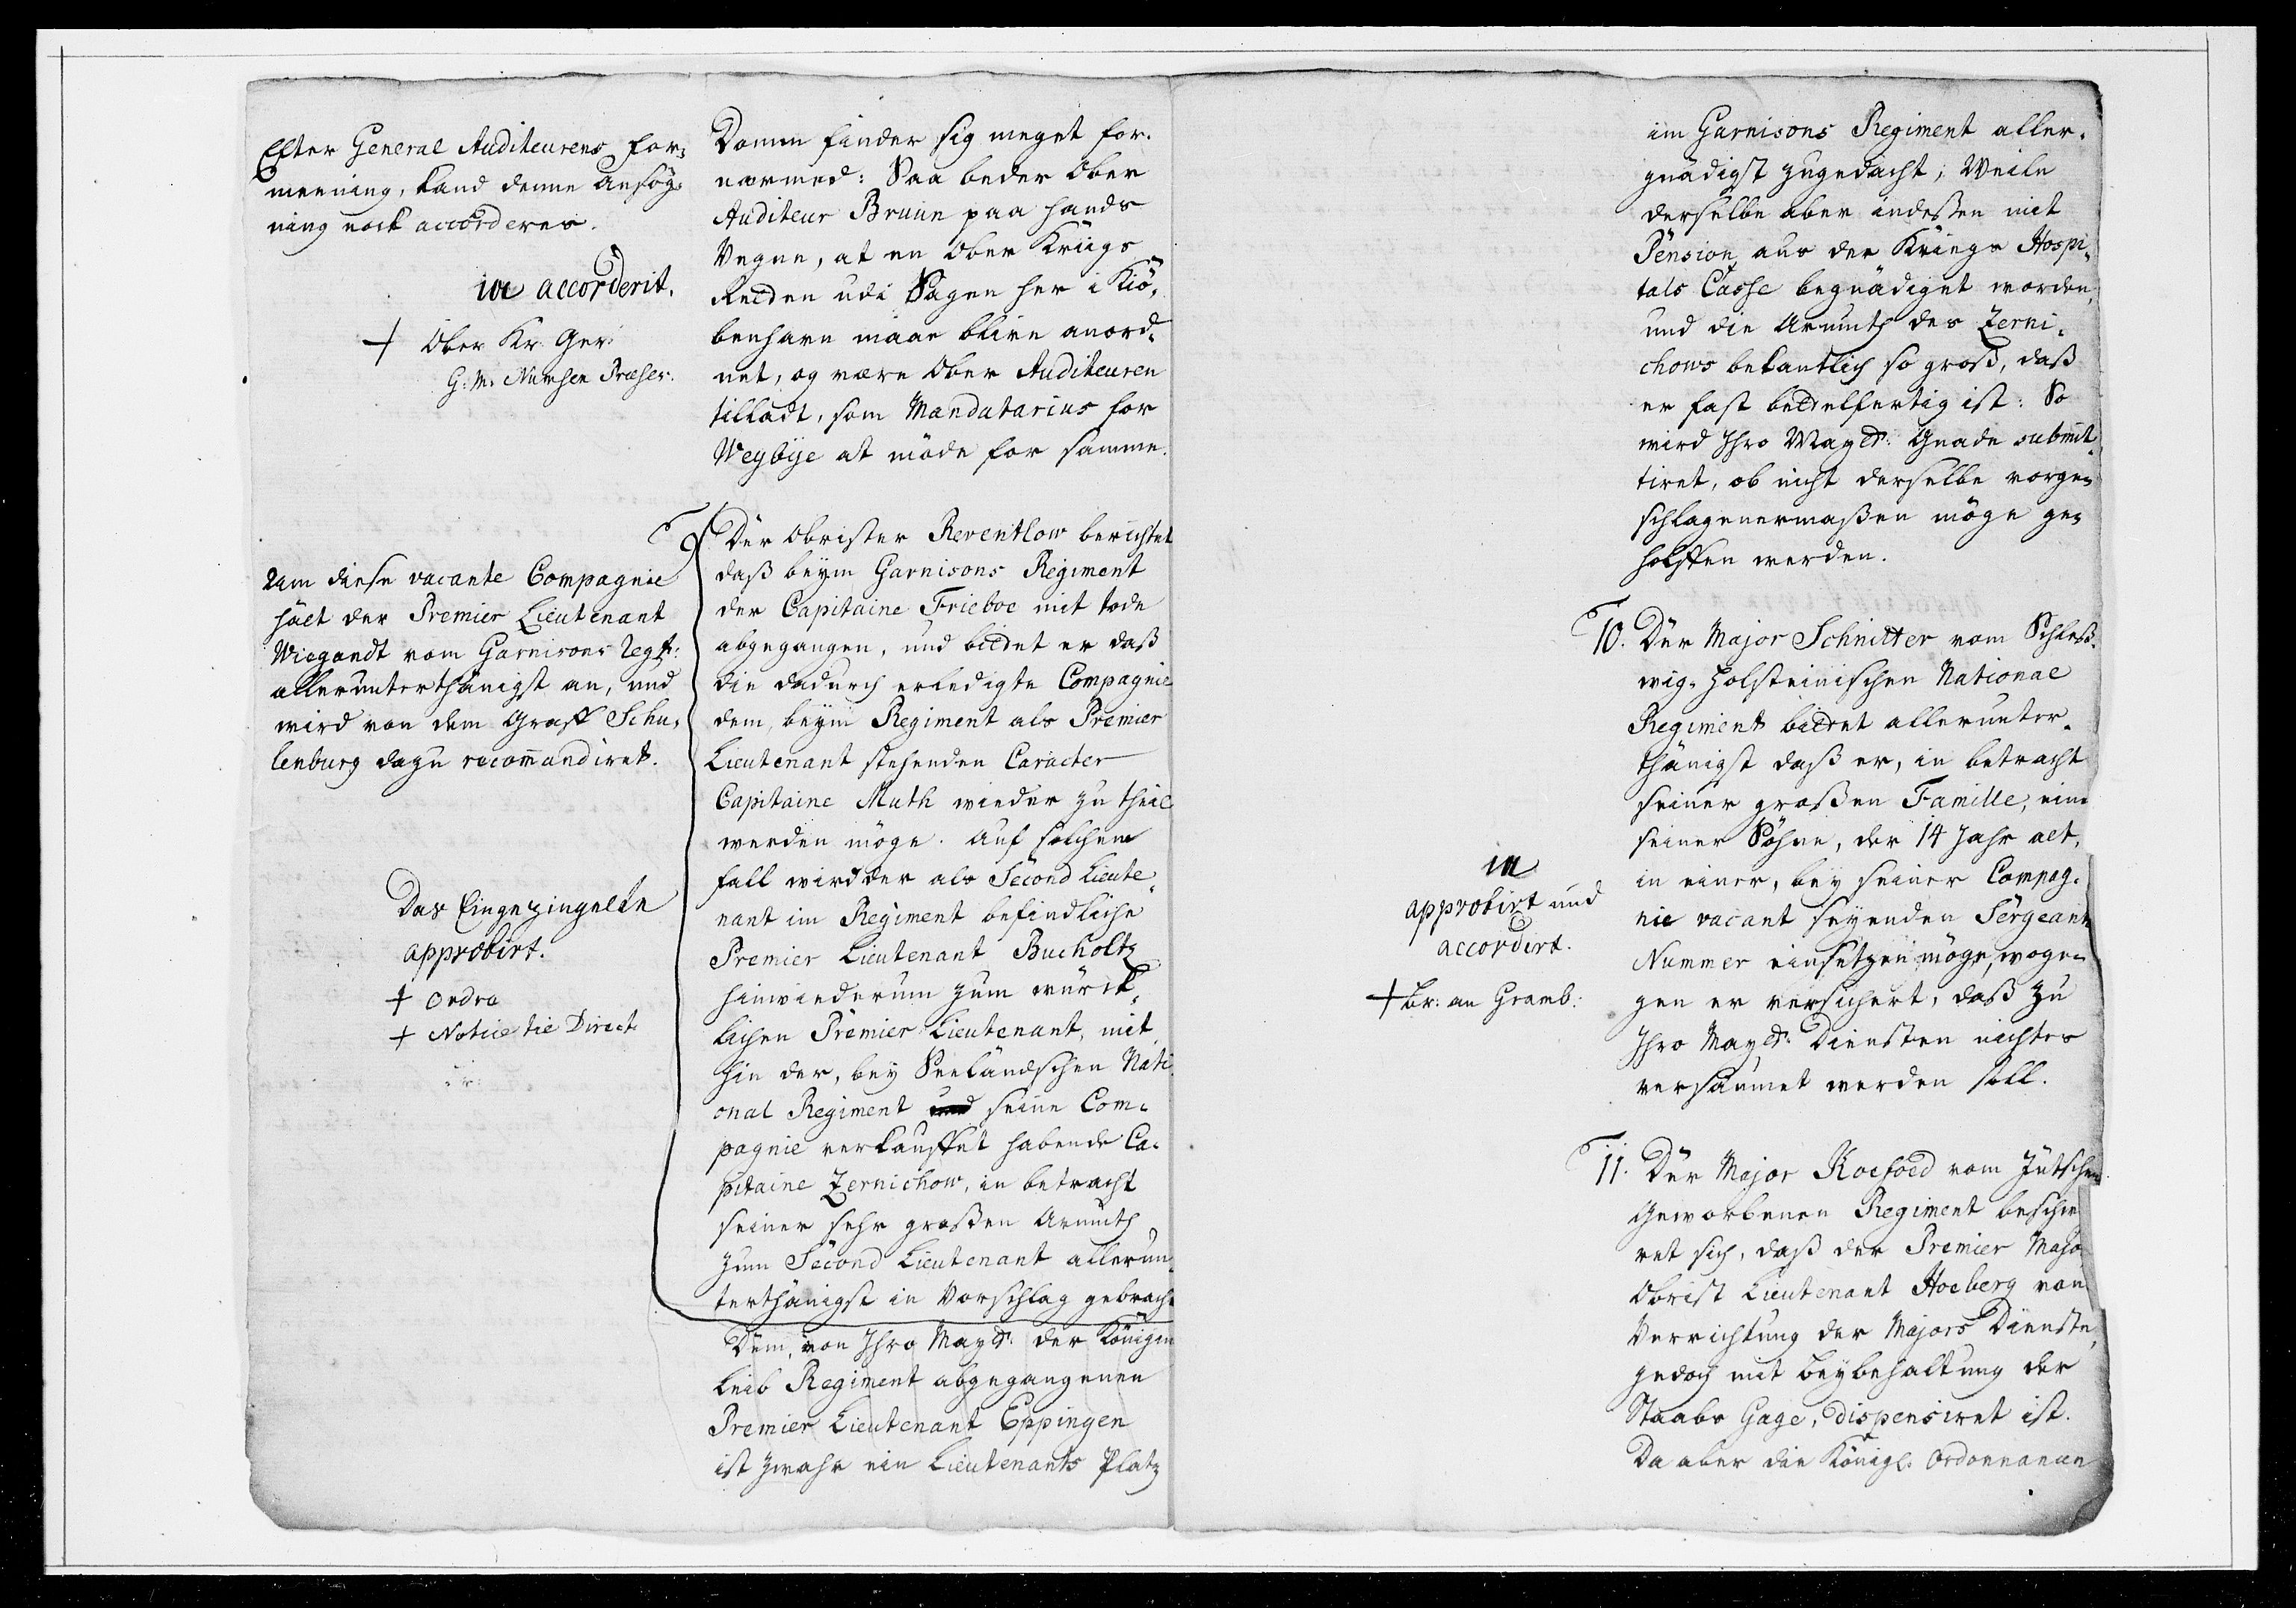 Efter General Auditeurens for-
meening, kand denne ansög-
ning nock accorderes.
in accorderit.
+ Ober Kr: Ger:
G: M: Numsen Præses.
Domen finder sig meget for-
nærmed: Saa beder Ober
Auditeur Bruun paa hands
Vegne, at en Ober Kriigs
Retten udi Sagen her i Kiö-
benhavn maae blive anord-
net, og være Ober Auditeuren
tilladt, som Mandatarius for
Weybÿe at möde for samme.
Um diese vacante Compagnie
hält der Premier Lieutenant
Wiegandt vom Garnisons Regt:
allerunterthänigst an, und
wird von dem Graff Schu-
lenburg dazu recommandiret.
Das Eingezingelte
approbirt.
+ Ordre
+ Notice til Direct.
9 Der Obrister Reventlow berichtet
daß beym Garnisons Regiment
der Capitaine Frieboe mit tode
abgegangen, und bittet er daß
die dadurch erledigte Compagnie
dem, beym Regiment als Premier
Lieutenant stehenden Caracter
Capitaine Muth wieder zu theil
werden möge. Auf solchem
fall wird der als Second Lieute-
nant im Regiment befindliche
Premier Lieutenant Bucholtz
hinwiederum zum würck-
lichen Premier Lieutenant, mit
hin der, bey Seeländschen Nati-
onal Regiment seine Com-
pagnie verkauffet habende Ca-
pitaine Zernichow, in betracht
seiner sehr großen Armuth
zum Second Lieutenant allerun-
terthänigst in Vorschlag gebracht
Dem, von Ihro Mayt: der Königin
Leib Regiment abgegangenen
Premier Lieutenant Eppingen
ist zwahr ein Lieutenants Platz
im Garnisons Regiment aller-
gnädigst zugedacht; Weile
derselbe aber indeßen mit
Pension aus der Kriegs Hospi-
tals Casse begnädiget worden,
und die Armuth des Zerni-
chows bekantlich so groß, daß
er fast bettelfertig ist: So
wird Ihro Mayt: Gnade submit-
tiret, ob nicht derselbe vorge-
schlagenermaßen möge ge-
holffen werden.
in
approbirt und
accordirt.
+ Br: an Gramb:
10. Der Major Schnitter vom Schleß-
wig-Holsteinischen National
Regiment bittet allerunter-
thänigst daß er, in betracht
seiner großen Famille, eine
seiner Söhne, der 14 Jahr alt,
in einer, bey seiner Compag-
nie vacant seyenden Sergeant
Nummer einsetzen möge, woge-
gen er versichert, daß zu
Ihro Mayt: Diensten nichtes
versäumet werden soll.
11. Der Major Koefoed vom Jütschen
Geworbenen Regiment beschwe
ret sich, daß der Premier Majo
Obrist Lieutenant Hoeberg von
Verrichtung der Majors Dienste,
jedoch mit beybehaltung der
Staabs Gage, dispensiret ist.
Da aber die Königl: Ordonnance